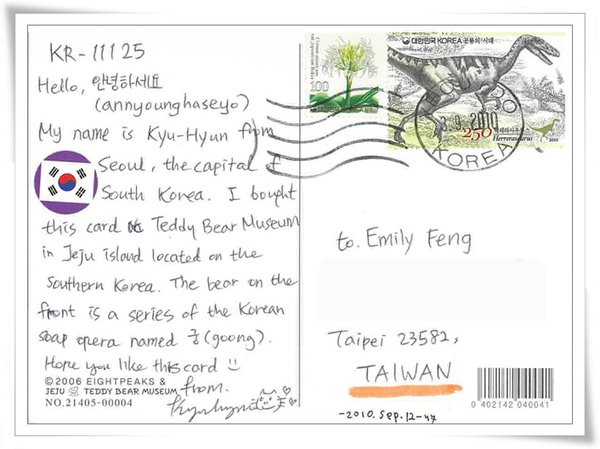 KR-11125
Hello, 안녕하세요
(annyounghaseyo)
My name is Kyu-Hyun from
Seoul, the capital of
South Korea. I bought
this card at Teddy Bear Museum
in Jeju island located on the
Southern Korea. The bear on the
front is a series of the Korean
soap opera named 궁(goong).
Hope you like this card
from.
Kyuhyun
©2006 EIGHTPEAKS &
JEJU TEDDY BEAR MUSEUM
NO.21405-00004
100
대한민국 KOREA 공룡의 시대
250
Herrerasaurus
2010
KOREA
to. Emily Feng
Taipei 23582,
TAIWAN
-2010. Sep. 12-47
0 402142 040041